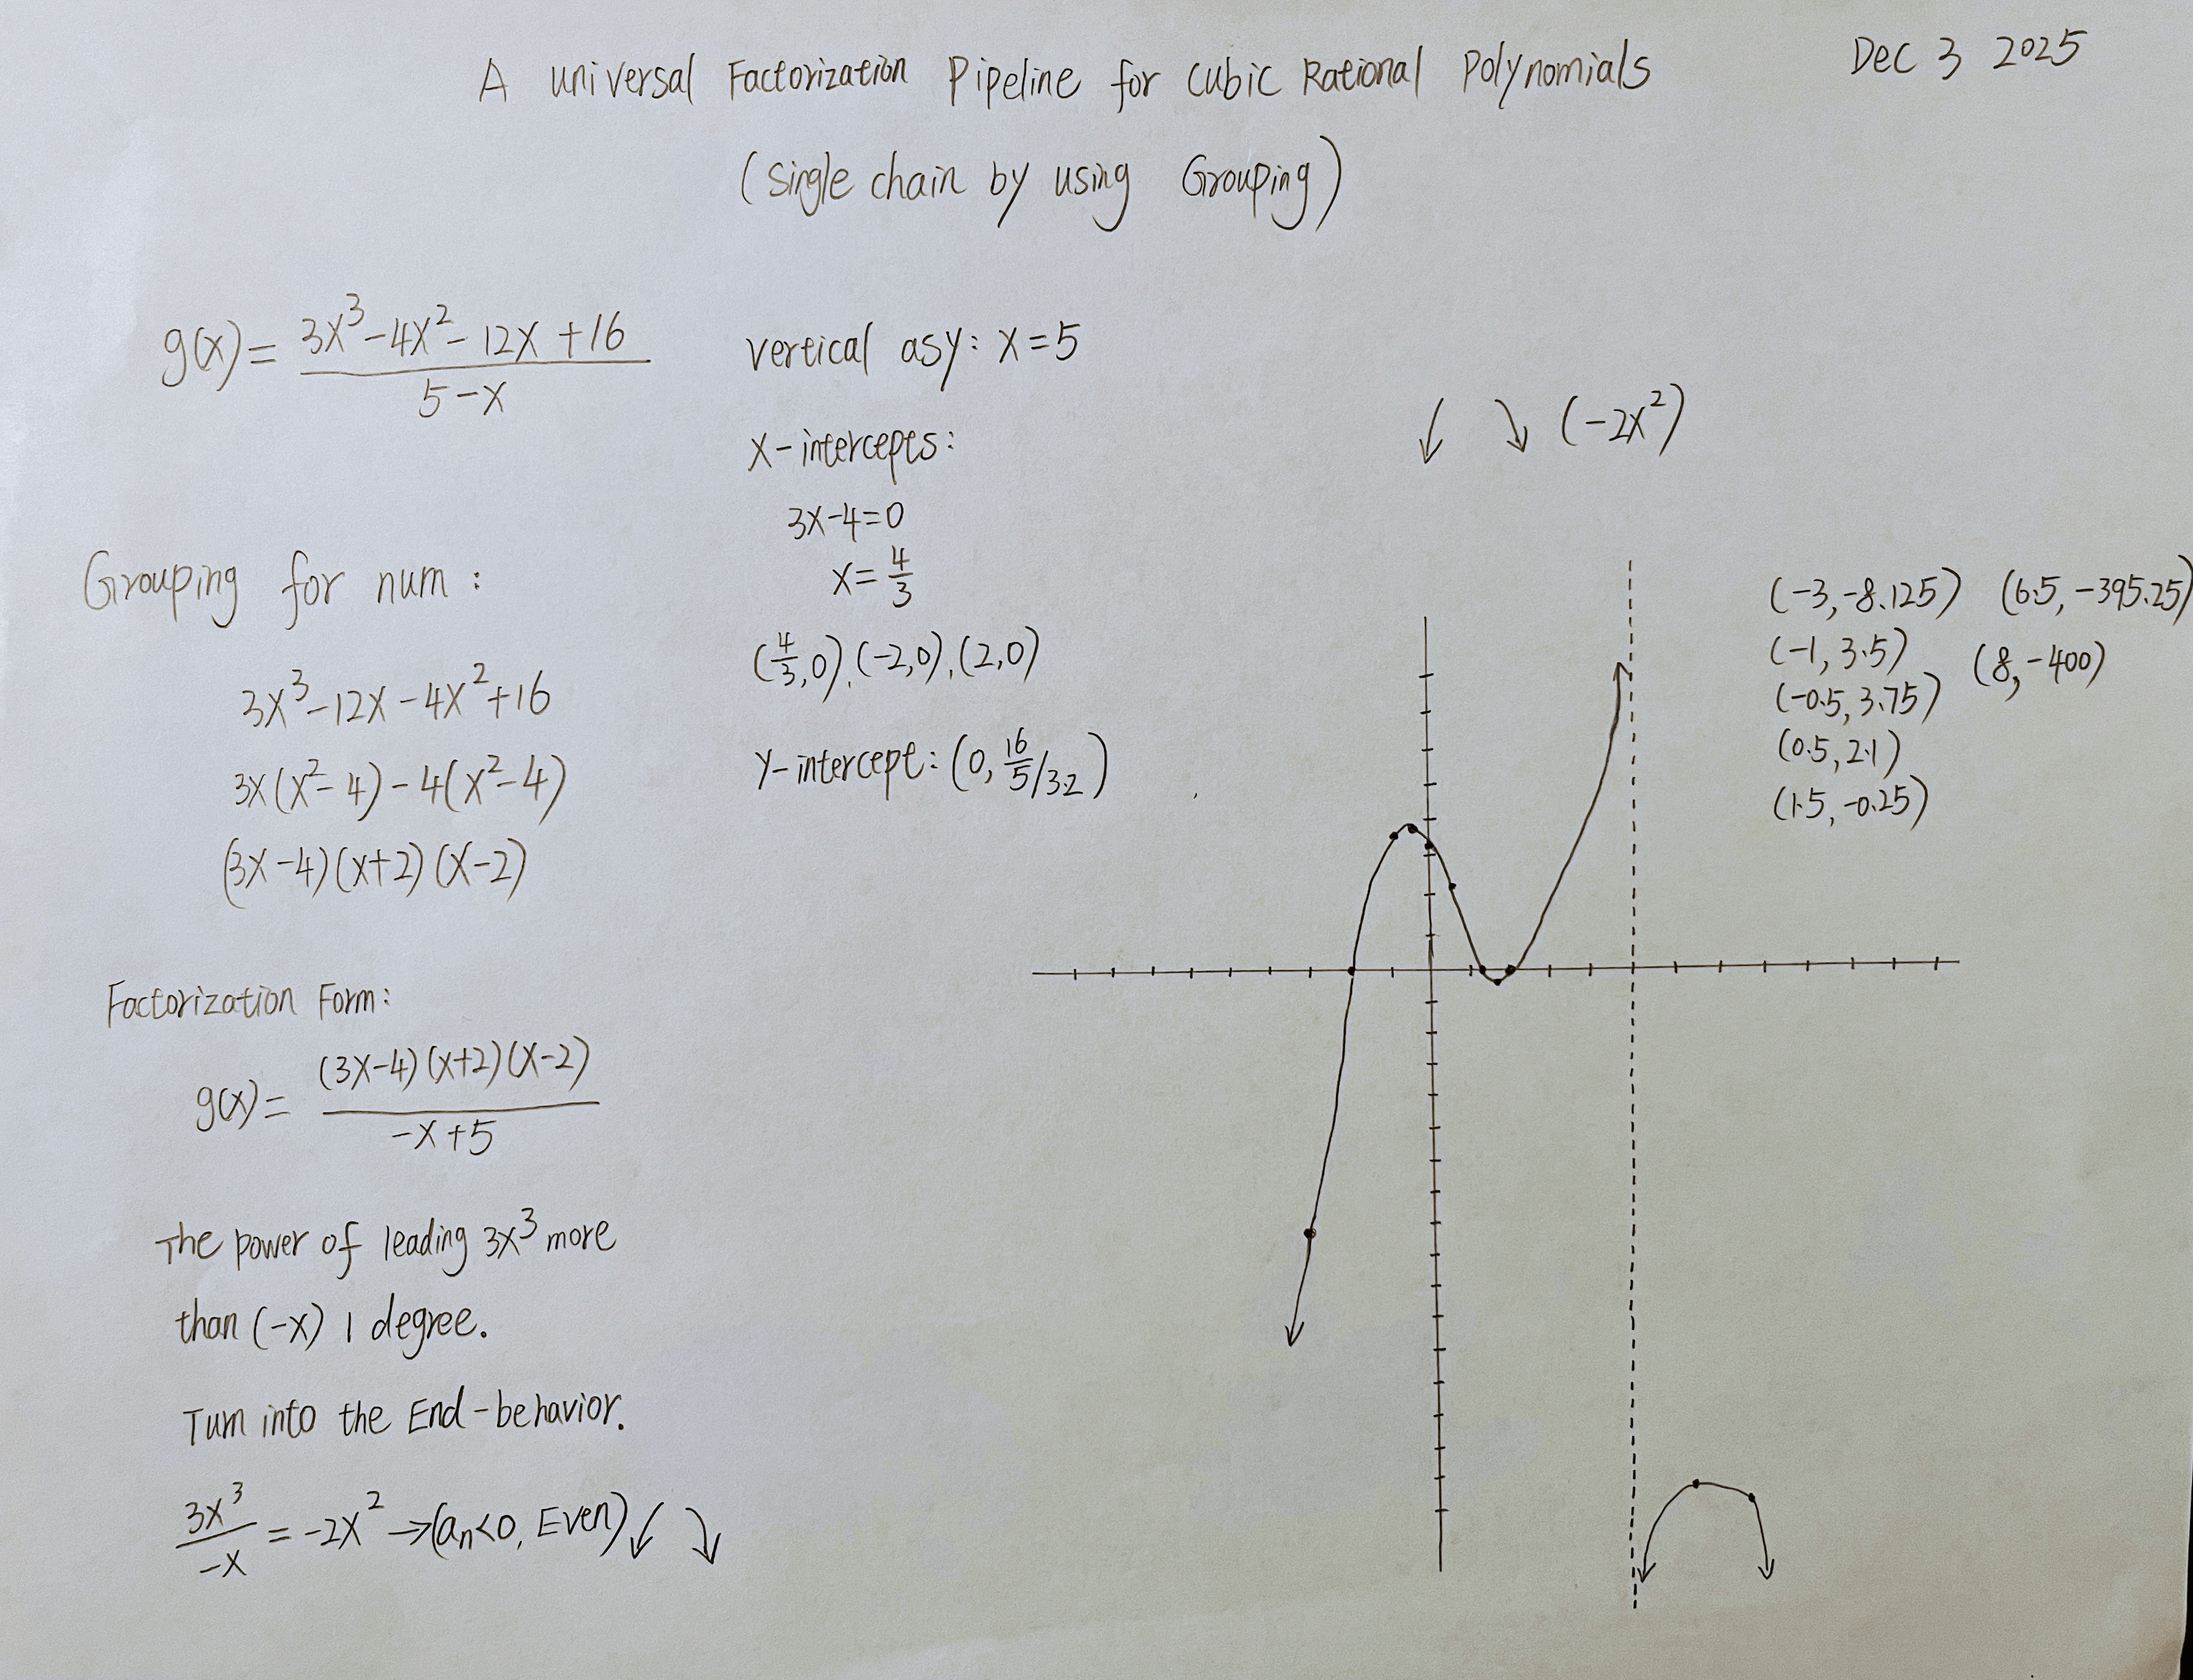 A universal Factorization Pipeline for Cubic Rational Polynomials
Dec 3 2025
(Single chain by using Grouping)
g(x) = \frac{3x^3-4x^2-12x+16}{5-x}
Grouping for num:
3x^3-12x-4x^2+16
3x(x^2-4)-4(x^2-4)
(3x-4)(x+2)(x-2)
Factorization Form:
g(x) = \frac{(3x-4)(x+2)(x-2)}{-x+5}
The power of leading 3x^3 more
than (-x) 1 degree.
Turn into the End-behavior.
\frac{3x^3}{-x} = -2x^2 → (a_n<0, Even) ↙ ↘
vertical asy: x=5
X-intercepts:
3x-4=0
x=\frac{4}{3}
(\frac{4}{3},0), (-2,0), (2,0)
Y-intercept: (0, \frac{16}{5}/3.2)
↙ ↘ (-2x^2)
(-3,-8.125) (6.5,-395.25)
(-1,3.5) (8,-400)
(-0.5,3.75)
(0.5,2.1)
(1.5,-0.25)